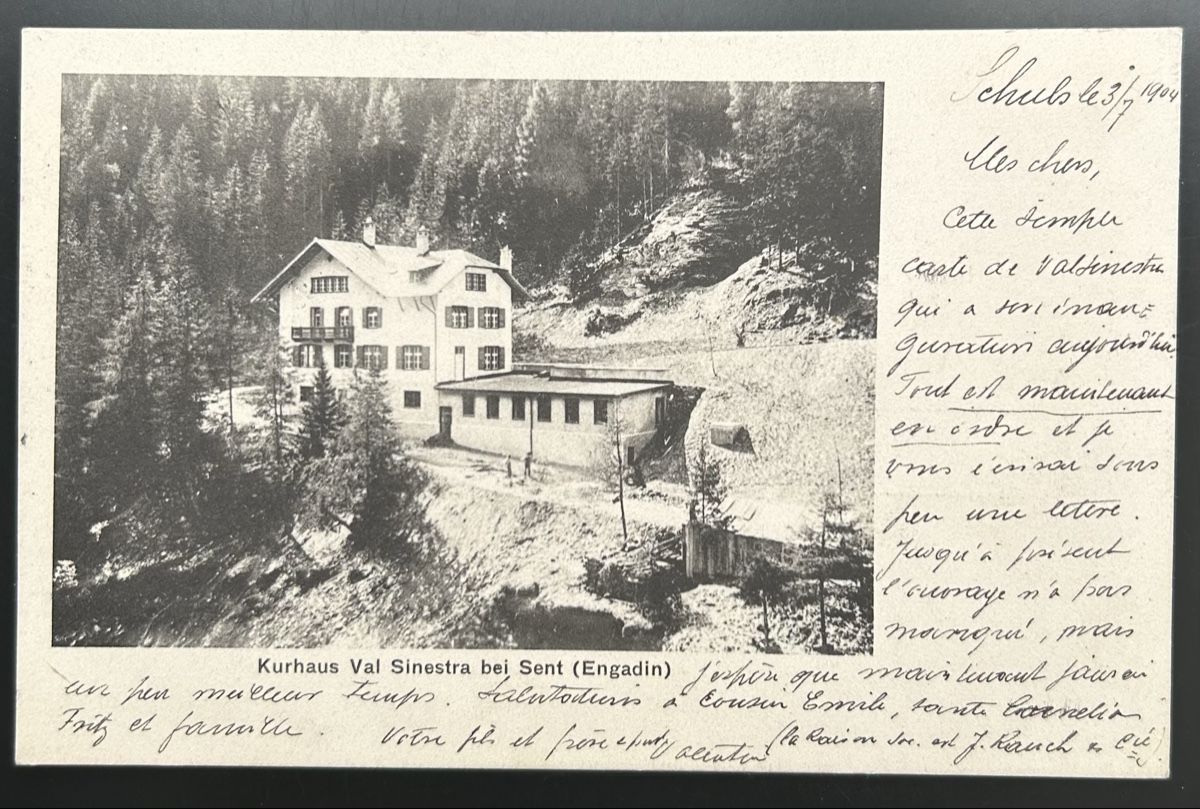 Schuls le 3/7 1904
Mes chers,
Cette simple
carte de Valsinestra
qui a son inau=
guration aujourd'hui
Tout est maintenant
en ordre et je
vous écrirai sous
peu une lettre.
Jusqu'à présent
l'ouvrage n'a pas
manqué, mais
Kurhaus Val Sinestra bei Sent (Engadin)
j'espère que maintenant j'aurai
un peu meilleur temps. Salutations à Cousin Emile, tante Cornelia
Fritz et famille.
Votre fils et frère Valentin
(la Raison soc. est J. Rauch & Cie).